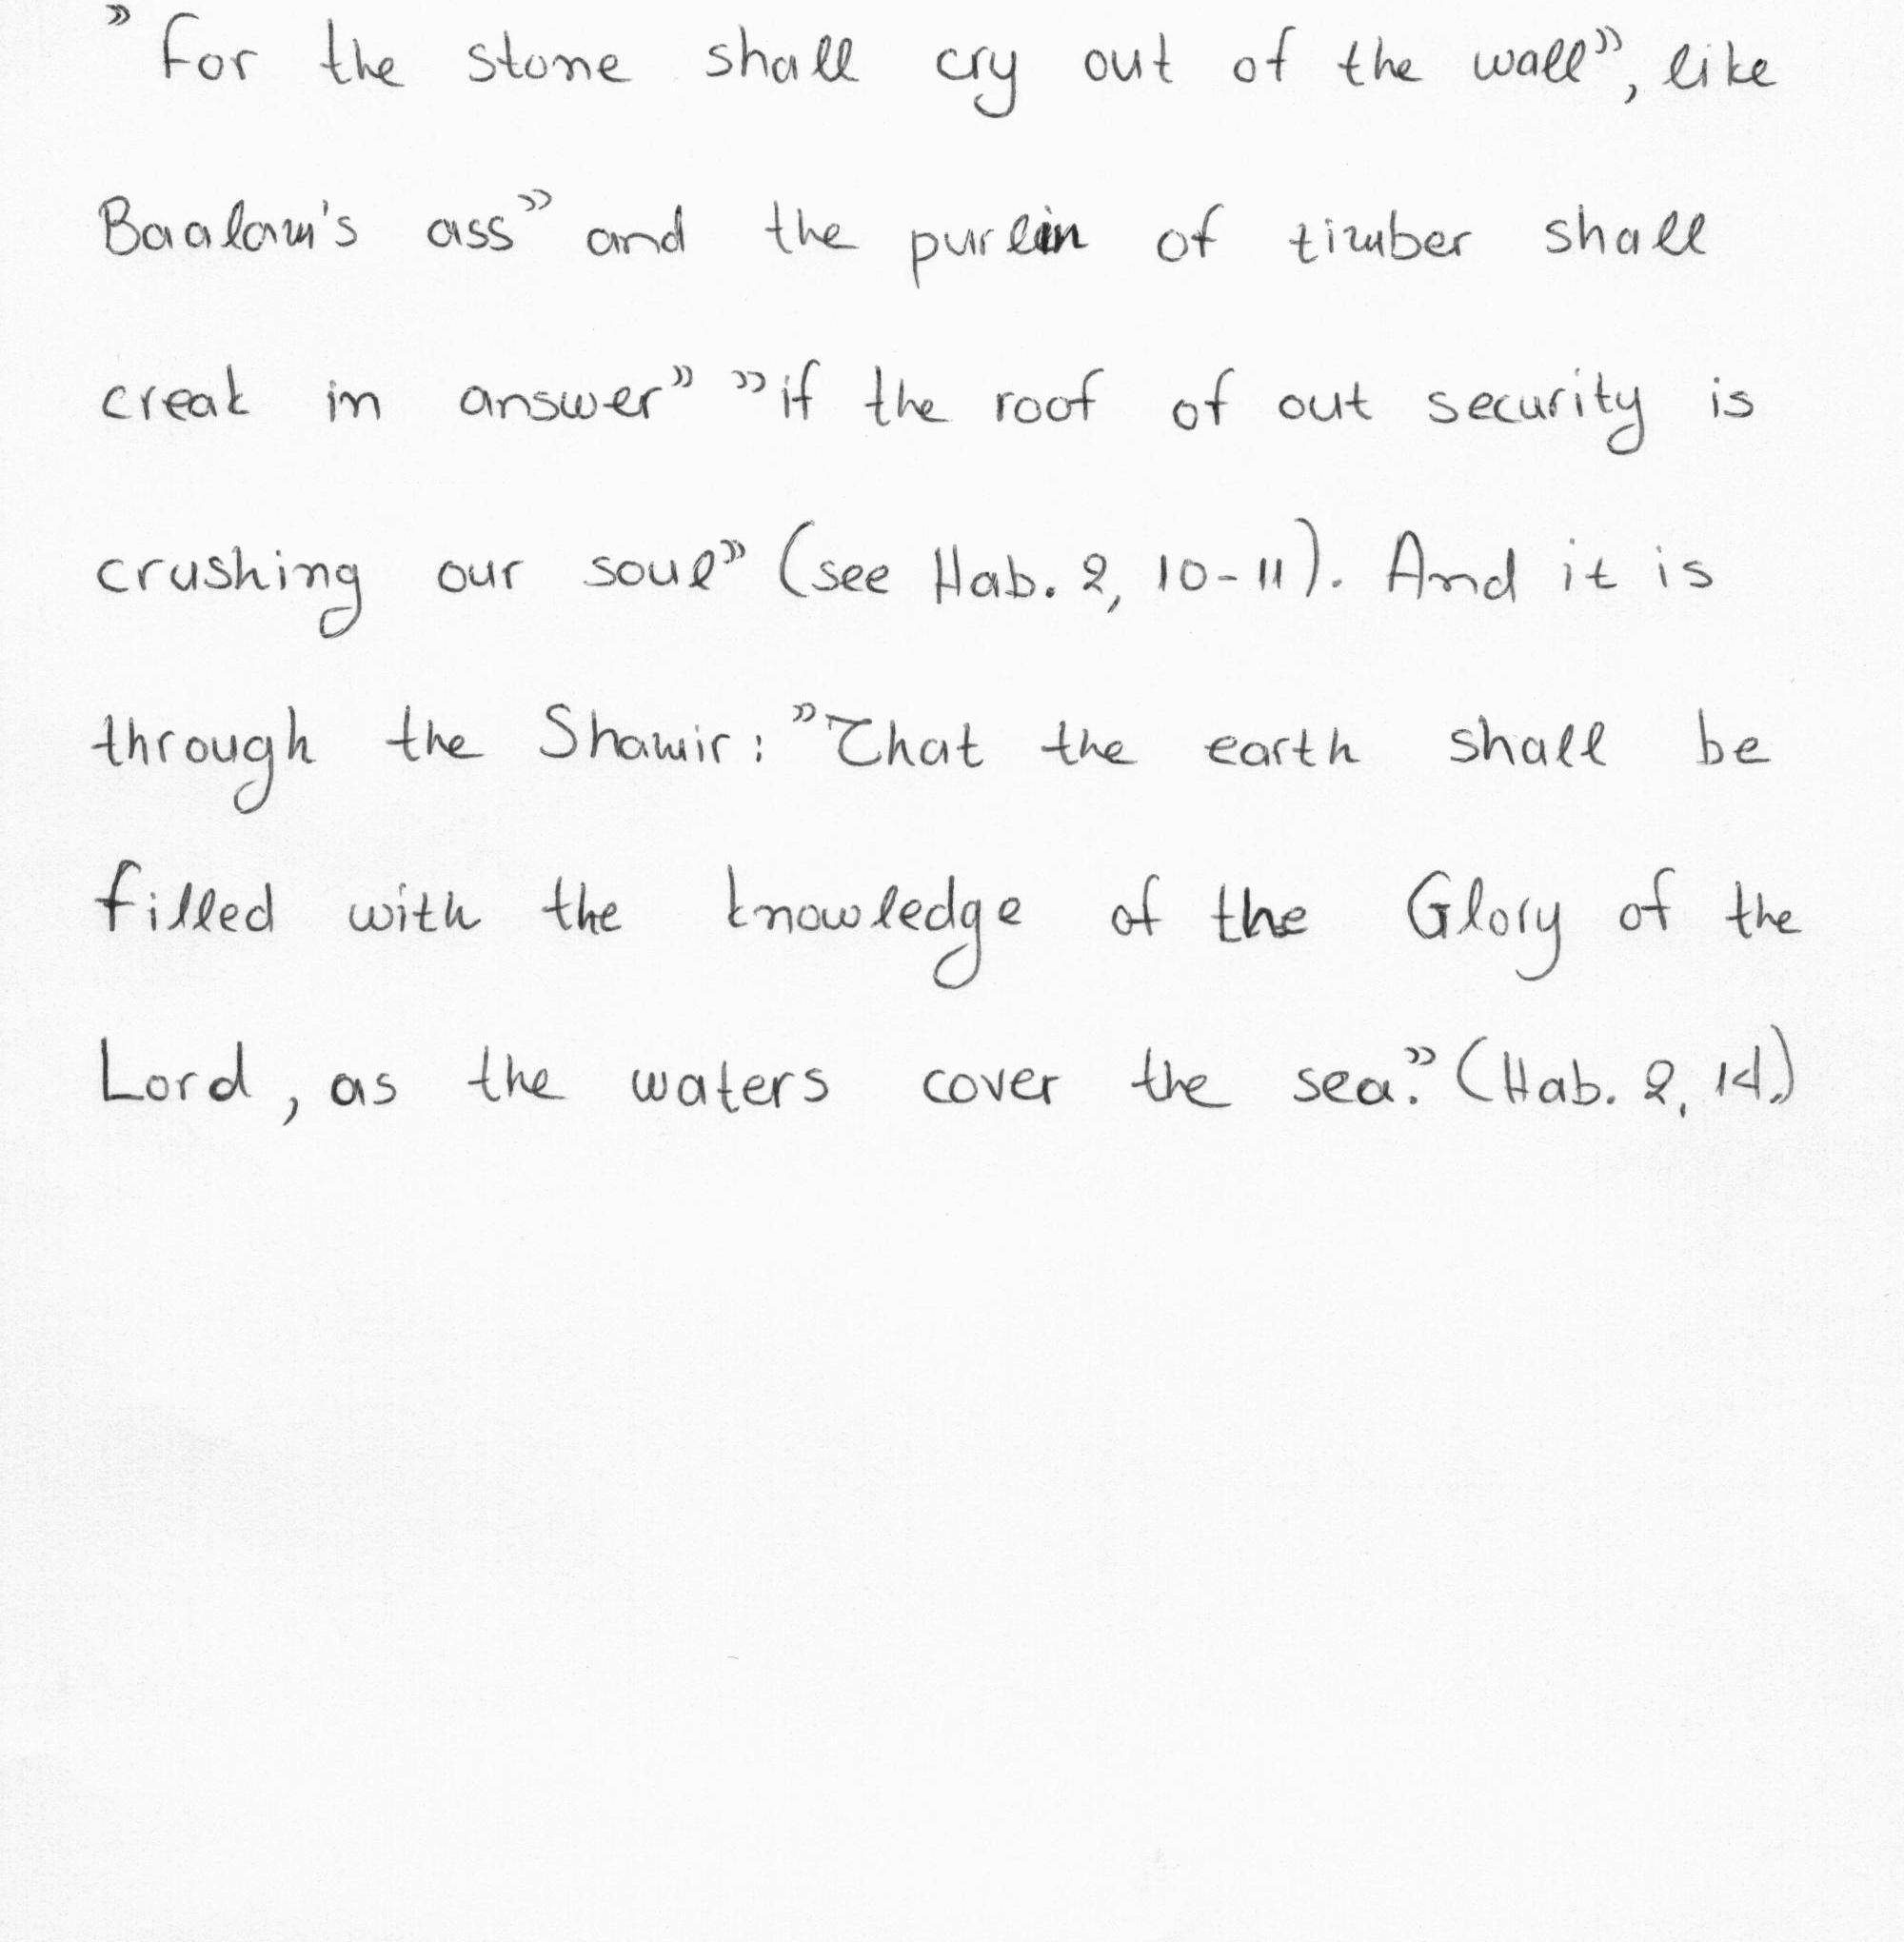 ”For the stone shall cry out of the wall”, like
Baalam's ass” and the purlin of timber shall
creak in answer” ”if the roof of out security is
crushing our soul” (see Hab. 2, 10-11). And it is
through the Shamir: ”That the earth shall be
filled with the knowledge of the Glory of the
Lord, as the waters cover the sea.” (Hab. 2, 14.)